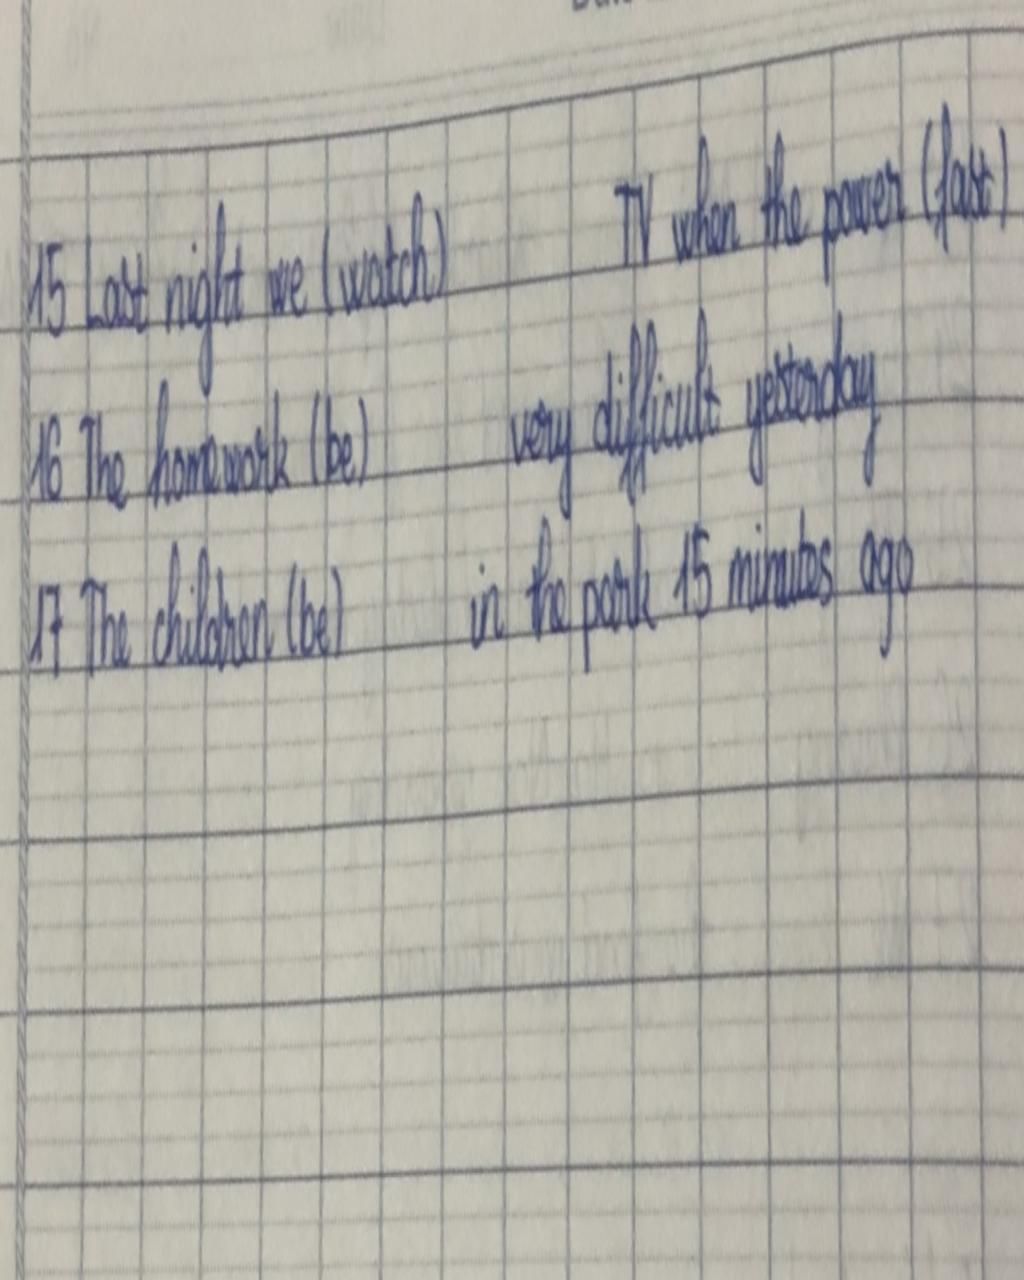 15 Last night we (watch) TV when the power (fast)
16 The homework (be) very difficult yesterday
17 The children (be) in the park 15 minutes ago